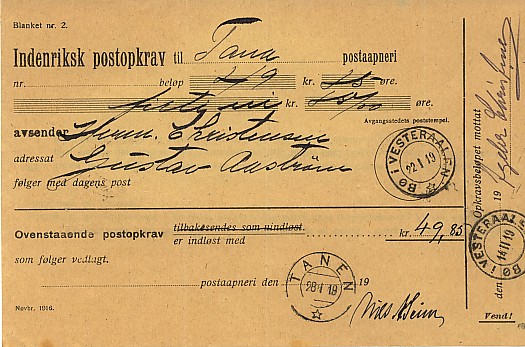 Blanket nr. 2.
Indenriksk postopkrav til Tana postaapneri
nr. beløp 49 kr. 85 øre.
kr. øre.
Avgangsstedets poststempel.
avsender Herm. Christensen
adressat Gustav Aastrøm
følger med dagens post
BØ I VESTERAALEN
22 I 19
Ovenstaaende postopkrav tilbakesendes som uindløst.
er indløst med kr. 49,85
som følger vedlagt.
postaapneri den 19
TANEN
28 I 19
Novbr. 1916.
Opkravsbeløpet mottat
den 19
BØ I VESTERAALEN
14 II 19
Vend!